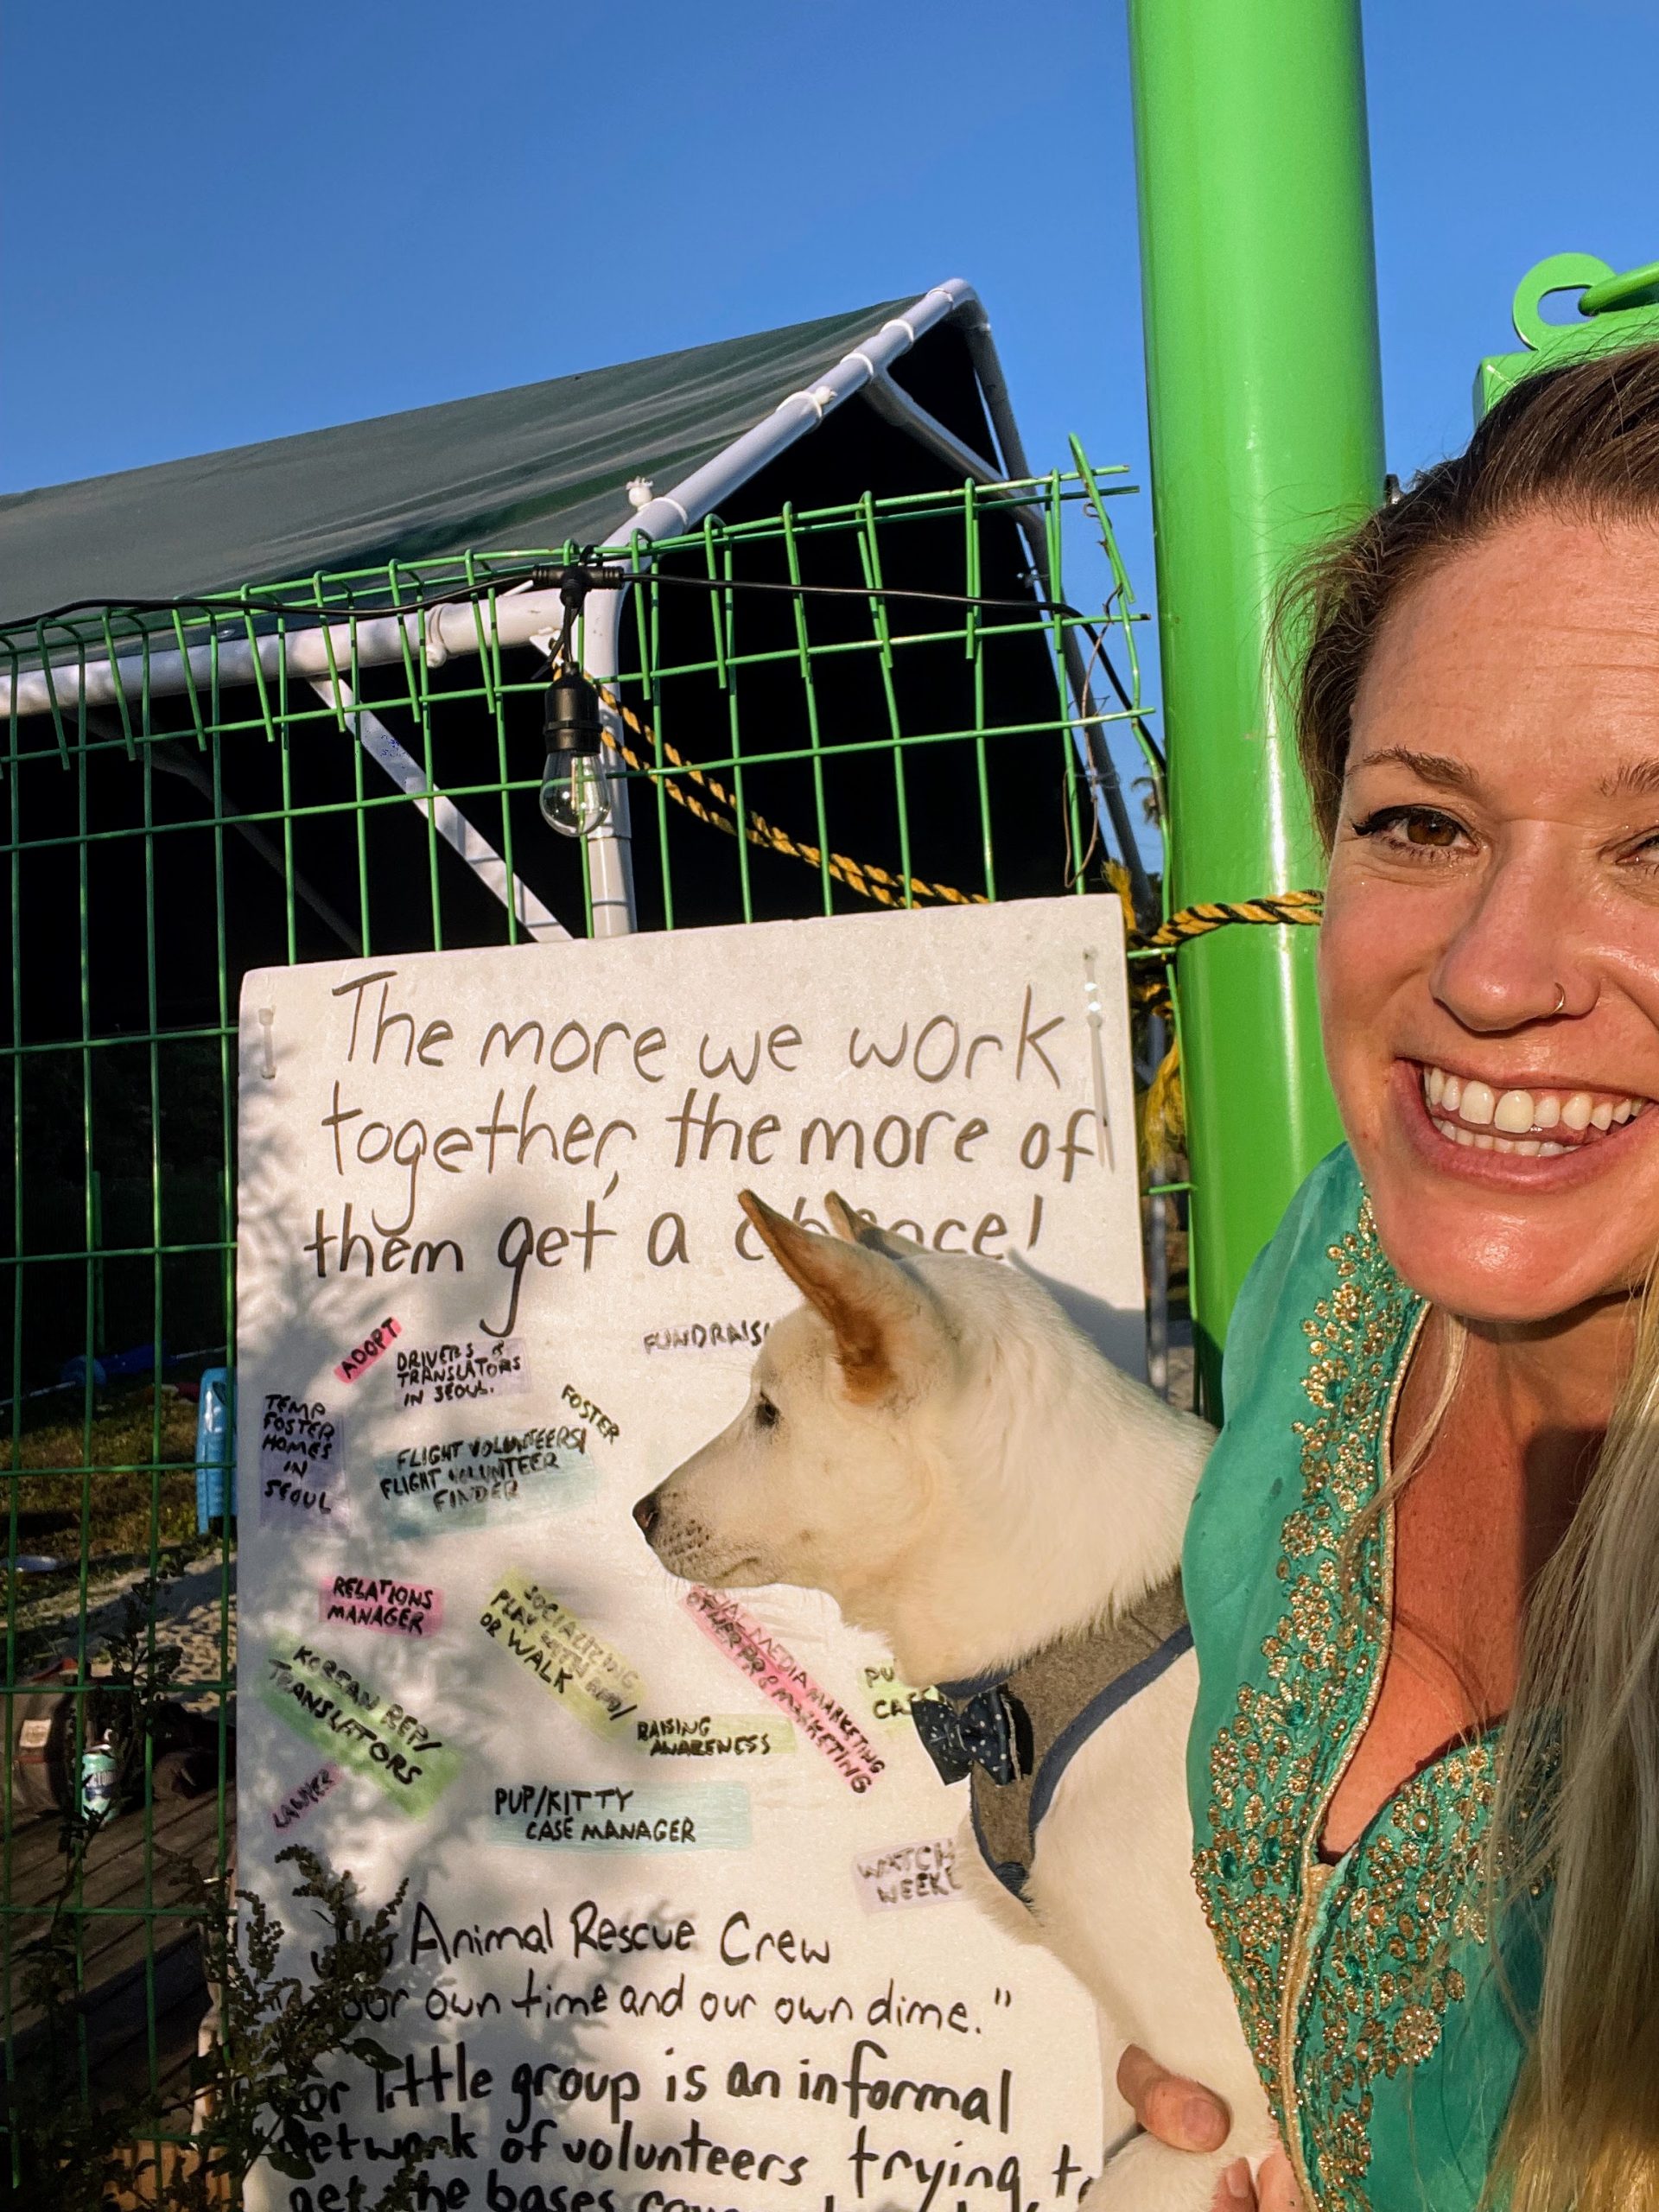 The more we work
together, the more of
them get a
ADOPT
DRIVERS &
TRANSLATORS
IN SEOUL.
TEMP
FOSTER
HOMES
IN
SEOUL
FOSTER
FLIGHT VOLUNTEERS/
FLIGHT VOLUNTEER
FINDER
RELATIONS
MANAGER
SOCIALIZING
PLAY WITH
OR WALK
MEDIA MARKETING
OTHER PR & MARKETING
KOREAN REP/
TRANSLATORS
RAISING
AWARENESS
PUP/KITTY
CASE MANAGER
WATCH
Animal Rescue Crew
our own time and our own dime."
little group is an informal
network of volunteers trying
get the bases